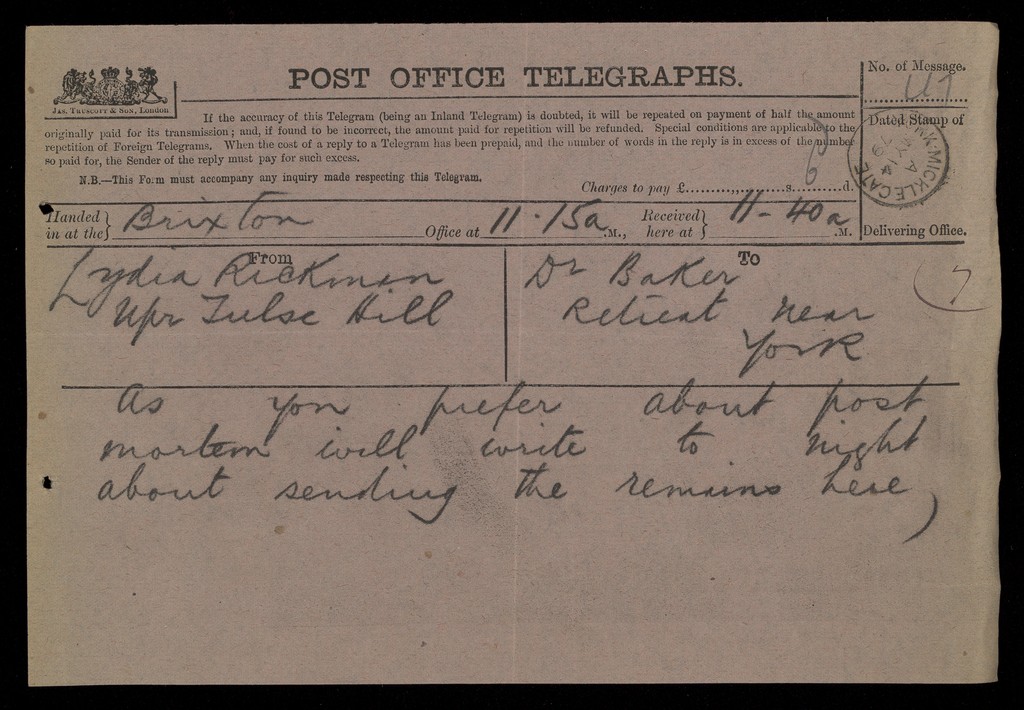 POST OFFICE TELEGRAPHS.
JAS. TRUSCOTT & SON, London
If the accuracy of this Telegram (being an Inland Telegram) is doubted, it will be repeated on payment of half the amount
originally paid for its transmission; and, if found to be incorrect, the amount paid for repetition will be refunded. Special conditions are applicable to the
repetition of Foreign Telegrams. When the cost of a reply to a Telegram has been prepaid, and the number of words in the reply is in excess of the number
so paid for, the Sender of the reply must pay for such excess.
N.B.—This Form must accompany any inquiry made respecting this Telegram.
Charges to pay £ s. 6 d.
No. of Message.
Dated Stamp of
MICKLEGATE
A
MY 14
79
Delivering Office.
Handed in at the } Brixton Office at 11.15a .M., Received here at } 11-40a .M.
From
Lydia Rickman
Upr Tulse Hill
To
Dr Baker
Retreat near
York
7
As you prefer about post
mortem will write to night
about sending the remains here